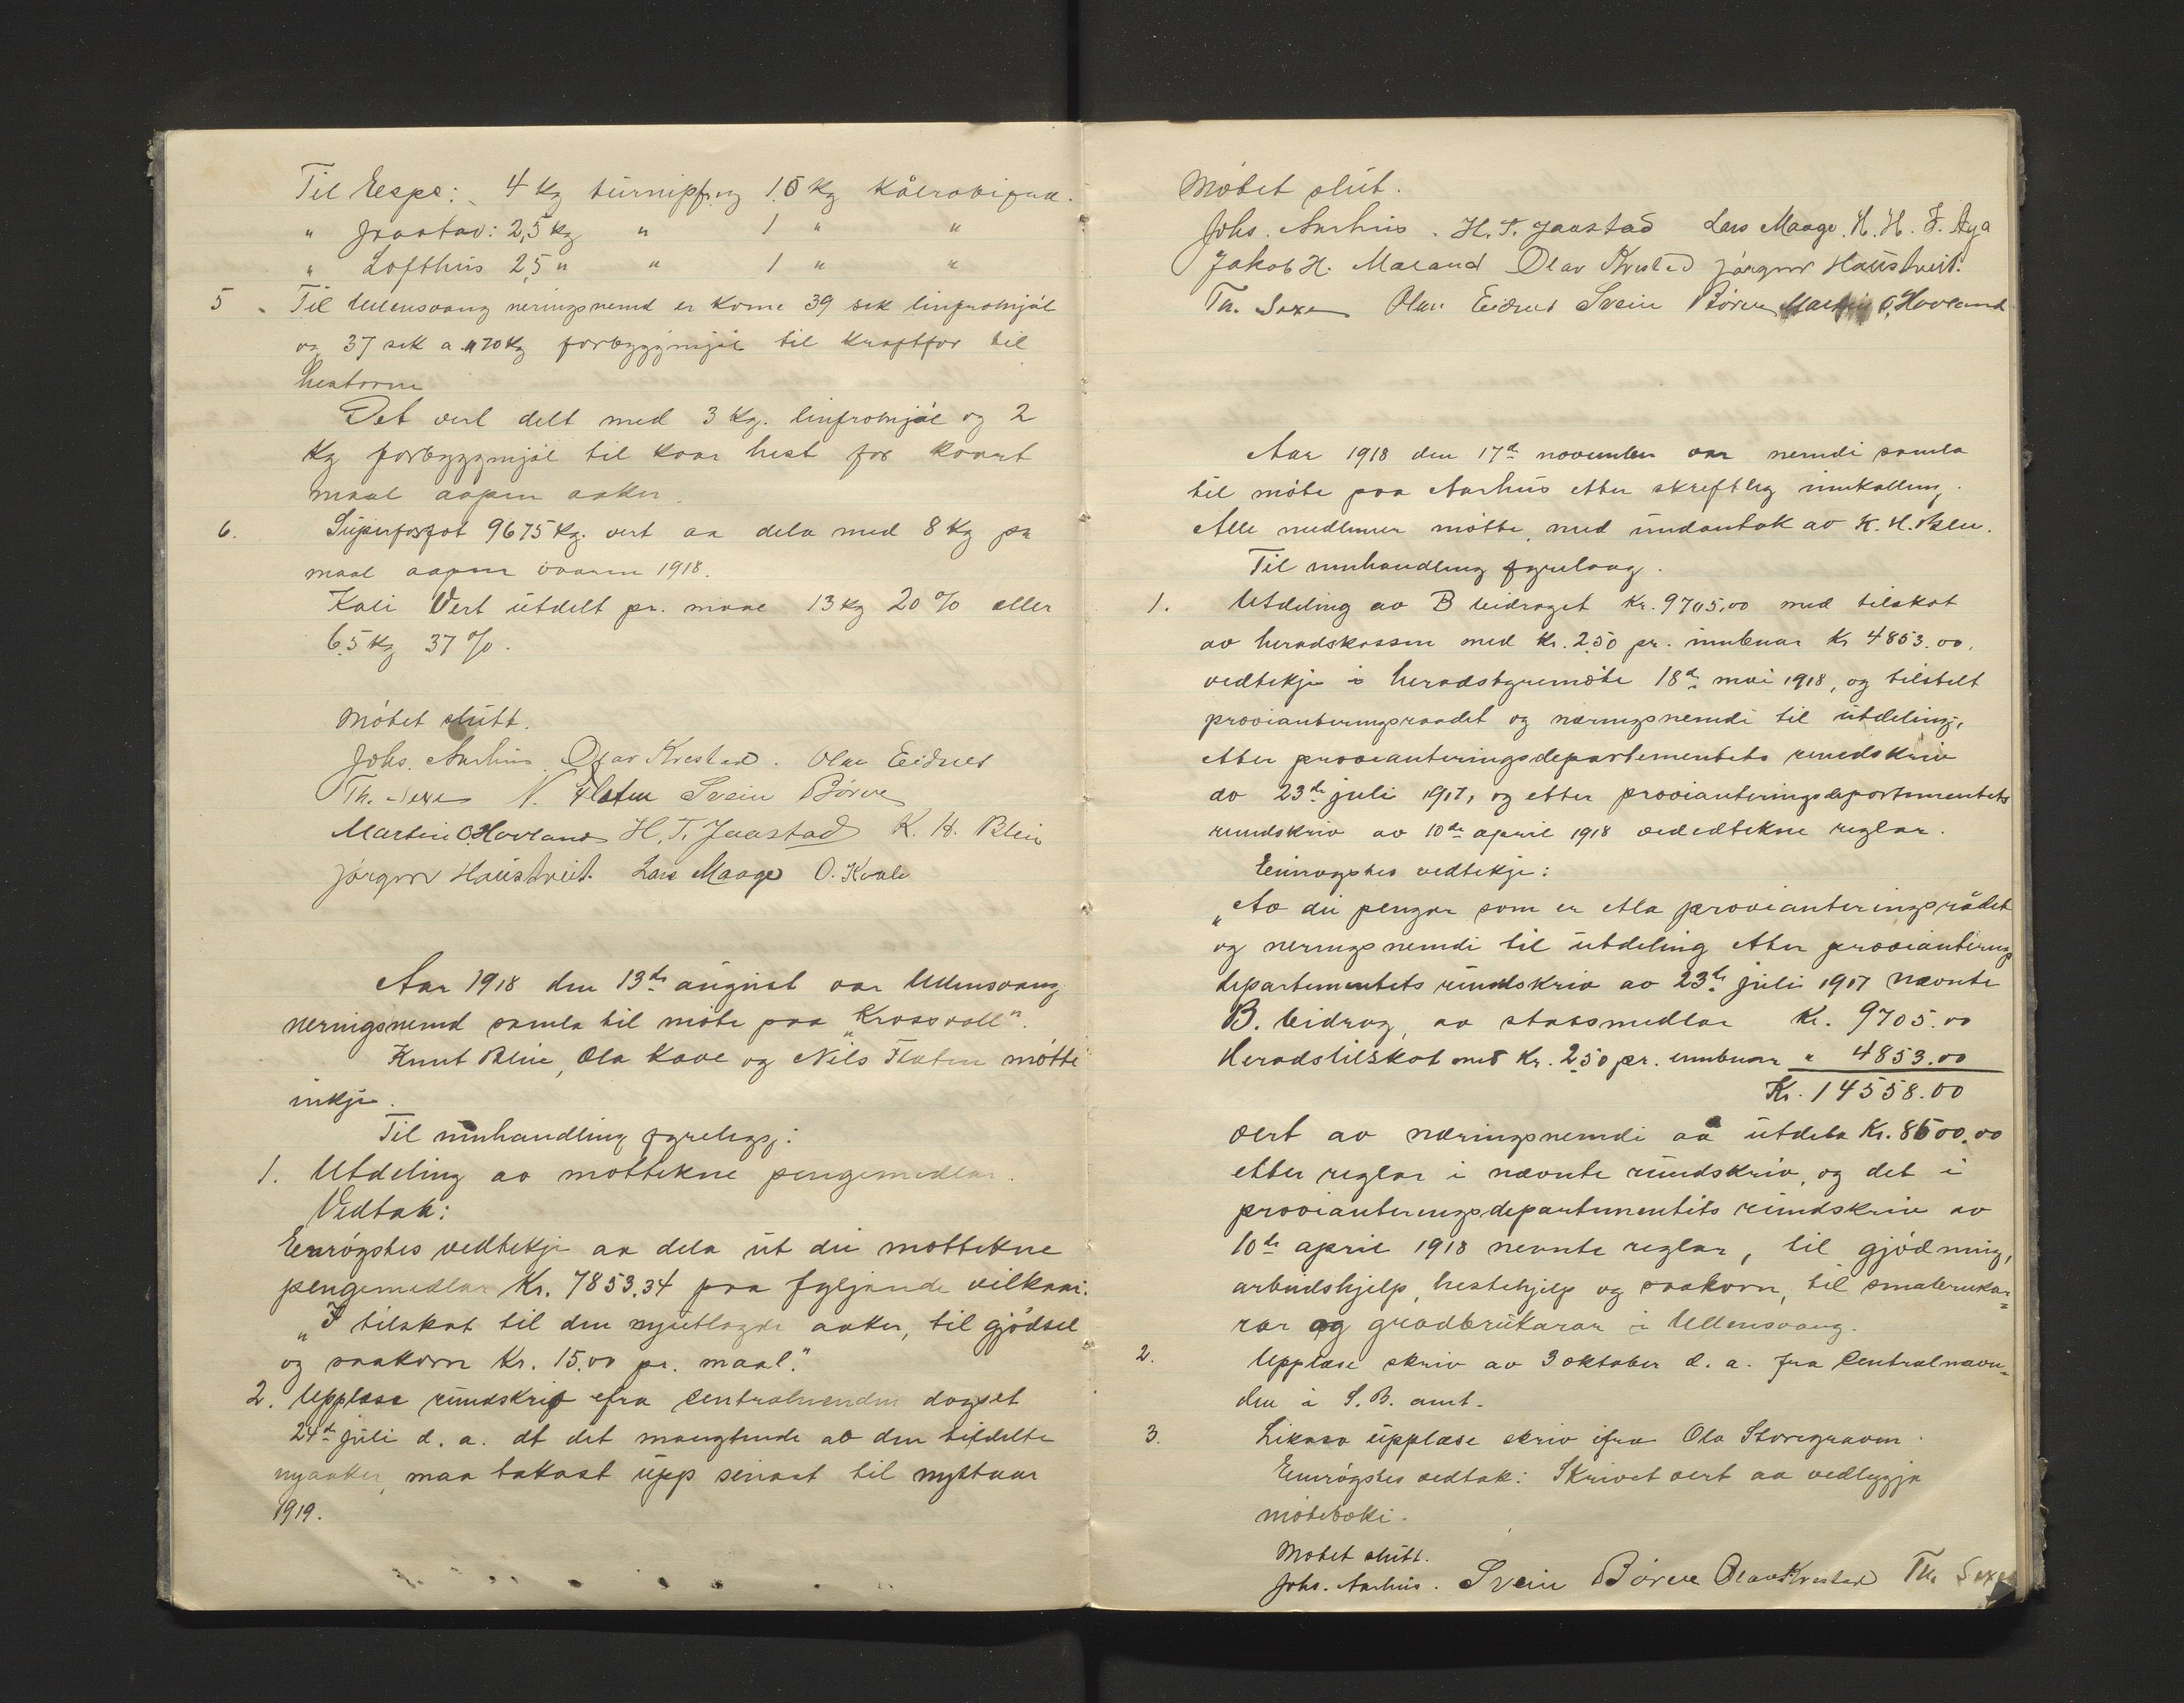 Til Espe: 4 kg turnipsfrø og 1.5 kg kålrabifrø.
" Jaastad: 2,5 kg " 1 " "
" Lofthus 2,5 " " 1 " "
5. Til Ullensvang neringsnemd er kome 39 sek linfromjøl
og 37 sek a 70 kg forbyggmjøl til kraftfor til
hestarne
Det vert delt med 3 kg. linfromjøl og 2
kg forbyggmjøl til kvar hest for kvart
maal aapen aaker.
6. Superfosfat 9675 kg. vert aa dela med 8 kg pr
maal aapen vaaren 1918.
Kali Vert utdelt pr. maal 13 kg 20 % eller
6.5 kg 37 %.
Møtet slutt.
Johs. Aarhus. Olav Kvestad. Olav Eidnes
Th. Sexe N. Flaten Svein Børve
Martin O. Hovland H. T. Jaastad K. H. Bleie
Jørgen Haustveit. Lars Maage O. Kvale
Aar 1918 den 13de august var Ullensvang
neringsnemd samla til møte paa "Krossvoll".
Knut Bleie, Ola Kvale og Nils Flaten møtte
inkje.
Til umhandling fyrelegg:
1. Utdeling av mottekne pengemedlar.
Vedtak:
Einrøystes vedtekje aa dela ut dei mottekne
pengemedlar Kr. 7853.34 paa fyljande vilkaar.
"I tilskot til den nyutlagde aaker, til gjødsel
og saakorn Kr. 15.00 pr. maal."
2. Upplese rundskriv efra Centralnemden dagset
24de juli d. a. at det manglende av den tildelte
nyaaker, maa takast upp seinast til nyttaar
1919.
Møtet slut.
Johs. Aarhus. H. T. Jaastad Lars Maage. H. H. F. Aga
Jakob H. Maeland Olav Kvestad Jørgen Haustveit.
Th. Sexe Olav Eidnes Svein Børve Martin O. Hovland
Aar 1918 den 17de november var nemdi samla
til møte paa Aarhus etter skreftleg innkalling.
Alle medlemer møtte, med undantak av K. H. Bleie.
Til umhandling fyrelaag.
1. Utdeling av B bidraget Kr. 9705,00 med tilskot
av heradskassen med Kr. 2.50 pr. innbuar Kr 4853.00,
vedtekje i heradstyremøte 18de mai 1918, og tilstelt
provianteringsraadet og næringsnemdi til utdeling,
etter provianteringsdepartementets rundskriv
av 23de juli 1917, og etter provianteringsdepartementets
rundskriv av 10de april 1918 vededtekne reglar.
Einrøystes vedtekje:
"Av dei pengar som er etla provianteringsrådet
og neringsnemdi til utdeling etter provianterings
departementets rundskriv av 23de juli 1917 nævnte
B. bidrag, av statsmedlar Kr. 9705.00
Heradstilskot med Kr. 2.50 pr. innbuar " 4853.00
Kr. 14558.00
vert av næringsnemdi aa utdela Kr. 8600.00
etter reglar i nævnte rundskriv, og det i
provianteringsdepartementets rundskriv av
10de april 1918 nevnte reglar, til gjødning,
arbeidshjelp, hestehjelp og saakorn, til smabruka=
rar og gradbrukarar i Ullensvang.
2. Upplese skriv av 3 oktober d. a. fra Centralnævn=
den i S. B. amt.
3. Likaso upplese skriv ifra Ola Storegraven.
Einrøystes vedtak: Skrivet vert aa vedleggja
møteboki.
Møtet slutt.
Johs. Aarhus. Svein Børve Olav Kvestad Th. Sexe